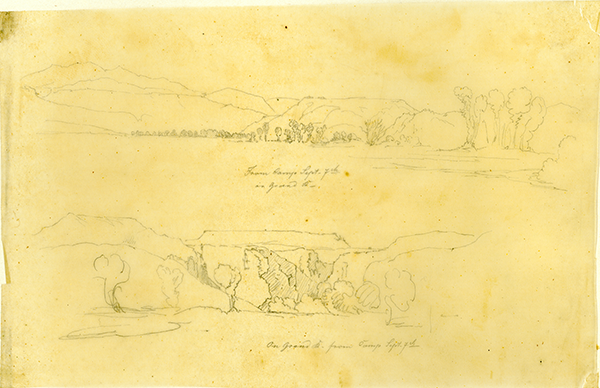 From Camp Sept. 7th
on Grand R.
On Grand R. from Camp Sept. 9th